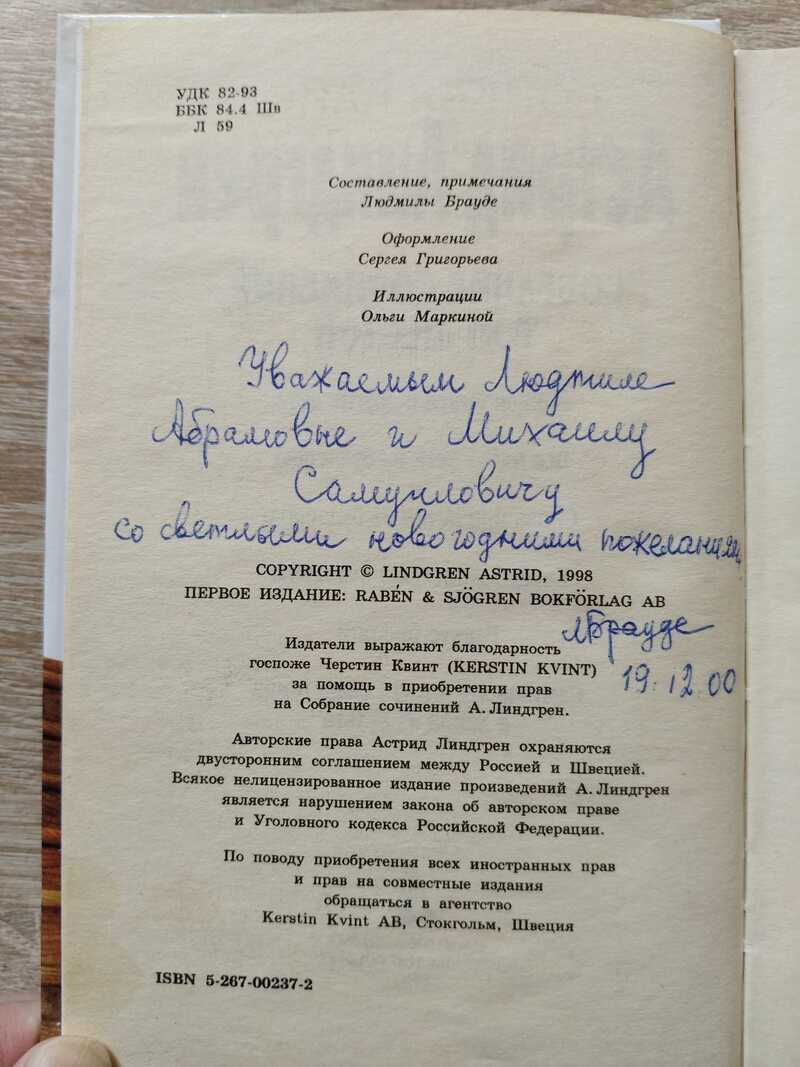 УДК 82-93
ББК 84.4 Шв
Л 59
Составление, примечания
Людмилы Брауде
Оформление
Сергея Григорьева
Иллюстрации
Ольги Маркиной
Уважаемым Людмиле
Абрамовне и Михаилу
Самуиловичу
со светлыми новогодними пожеланиями
COPYRIGHT © LINDGREN ASTRID, 1998
ПЕРВОЕ ИЗДАНИЕ: RABÉN & SJÖGREN BOKFÖRLAG AB
ЛБрауде
19.12.00
Издатели выражают благодарность
госпоже Черстин Квинт (KERSTIN KVINT)
за помощь в приобретении прав
на Собрание сочинений А. Линдгрен.
Авторские права Астрид Линдгрен охраняются
двусторонним соглашением между Россией и Швецией.
Всякое нелицензированное издание произведений А. Линдгрен
является нарушением закона об авторском праве
и Уголовного кодекса Российской Федерации.
По поводу приобретения всех иностранных прав
и прав на совместные издания
обращаться в агентство
Kerstin Kvint AB, Стокгольм, Швеция
ISBN 5-267-00237-2